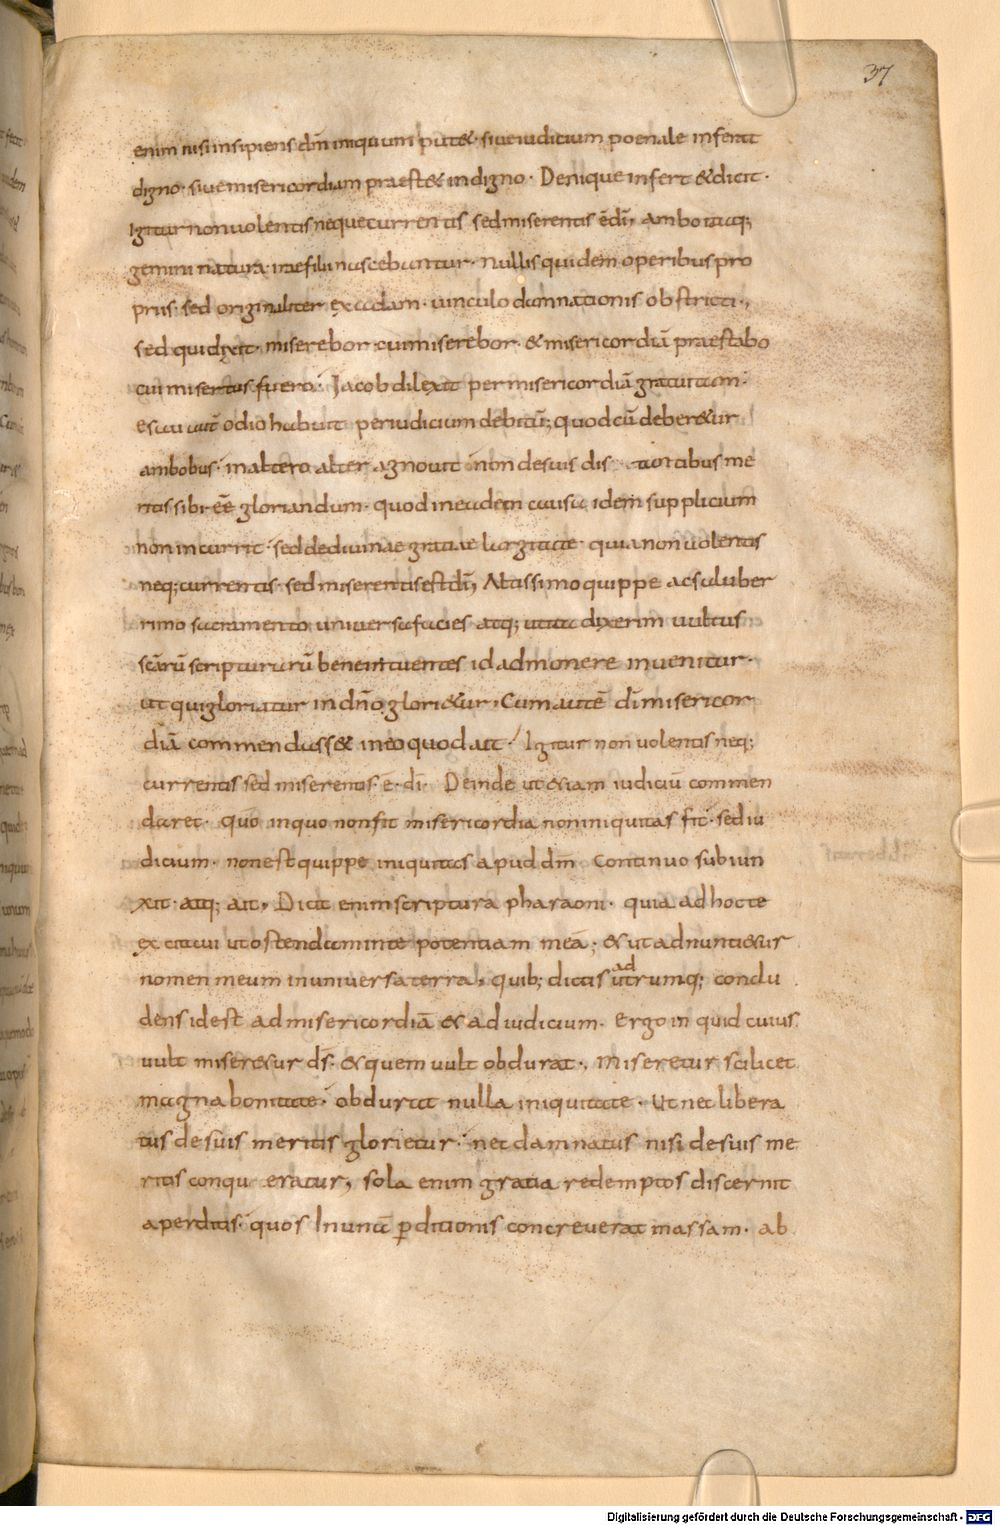 37
enim nisi insipiens dn̄m iniquum put&· siue iudicium poenale inferat
digno· siue misericordiam praest& indigno· Denique infert & dicit·
Igitur non uolentis neque currentis sed miserentis ē dī, Ambo itaq;
gemini natura irae filii nascebantur· Nullis quidem operibus pro
priis· sed originaliter ex adam· uinculo damnationis obstricti·,
sed qui dixit· miserebor cui miserebor· & misericordiā praestabo
cui misertus fuero· Iacob dilexit per misericordiā gratuitam·
esau aut̄ odio habuit per iudicium debitū; quod cū deber&ur
ambobus· in altero alter agnouit non de suis dis tantibus me
ritis sibi eē gloriandum· quod in eadem causa idem supplicium
non incurrit· sed de diuinae gratiae largitate· quia non uolentis
neq; currentis· sed miserentis est dī, Altissimo quippe ac saluber
rimo sacramento uniuersa facies atq; ut ita dixerim uultus
scārū scripturarū bene intuentes id admonere inuenitur·
ut qui gloriatur in dn̄o glori&ur, Cum autē dī misericor
diā commendass& in eo quod ait· Igitur non uolentis neq;
currentis sed miserentis· ē· dī· Deinde ut &iam iudiciū commen
daret· quō in quo non fit misericordia non iniquitas fit· sed iu
dicium· non est quippe iniquitas apud dm̄ Continuo subiun
xit· atq; ait, Dicit enim scriptura pharaoni· quia ad hoc te
excitaui ut ostendam in te potentiam meā; & ut adnunti&ur
nomen meum in uniuersa terra, quib; dictis ad utrumq; conclu
dens id est ad misericordiā & ad iudicium· Ergo inquid cuius
uult miser&ur ds̄· & quem uult obdurat·, Miseretur scilicet
magna bonitate· obdurat nulla iniquitate· Ut nec libera
tus de suis meritis glorietur· nec damnatus nisi de suis me
ritis conqu eratur, sola enim gratia redemptos discernit
a perditis· quos In unā p̄ditionis concreuerat massam· ab
Digitalisierung gefördert durch die Deutsche Forschungsgemeinschaft - DFG